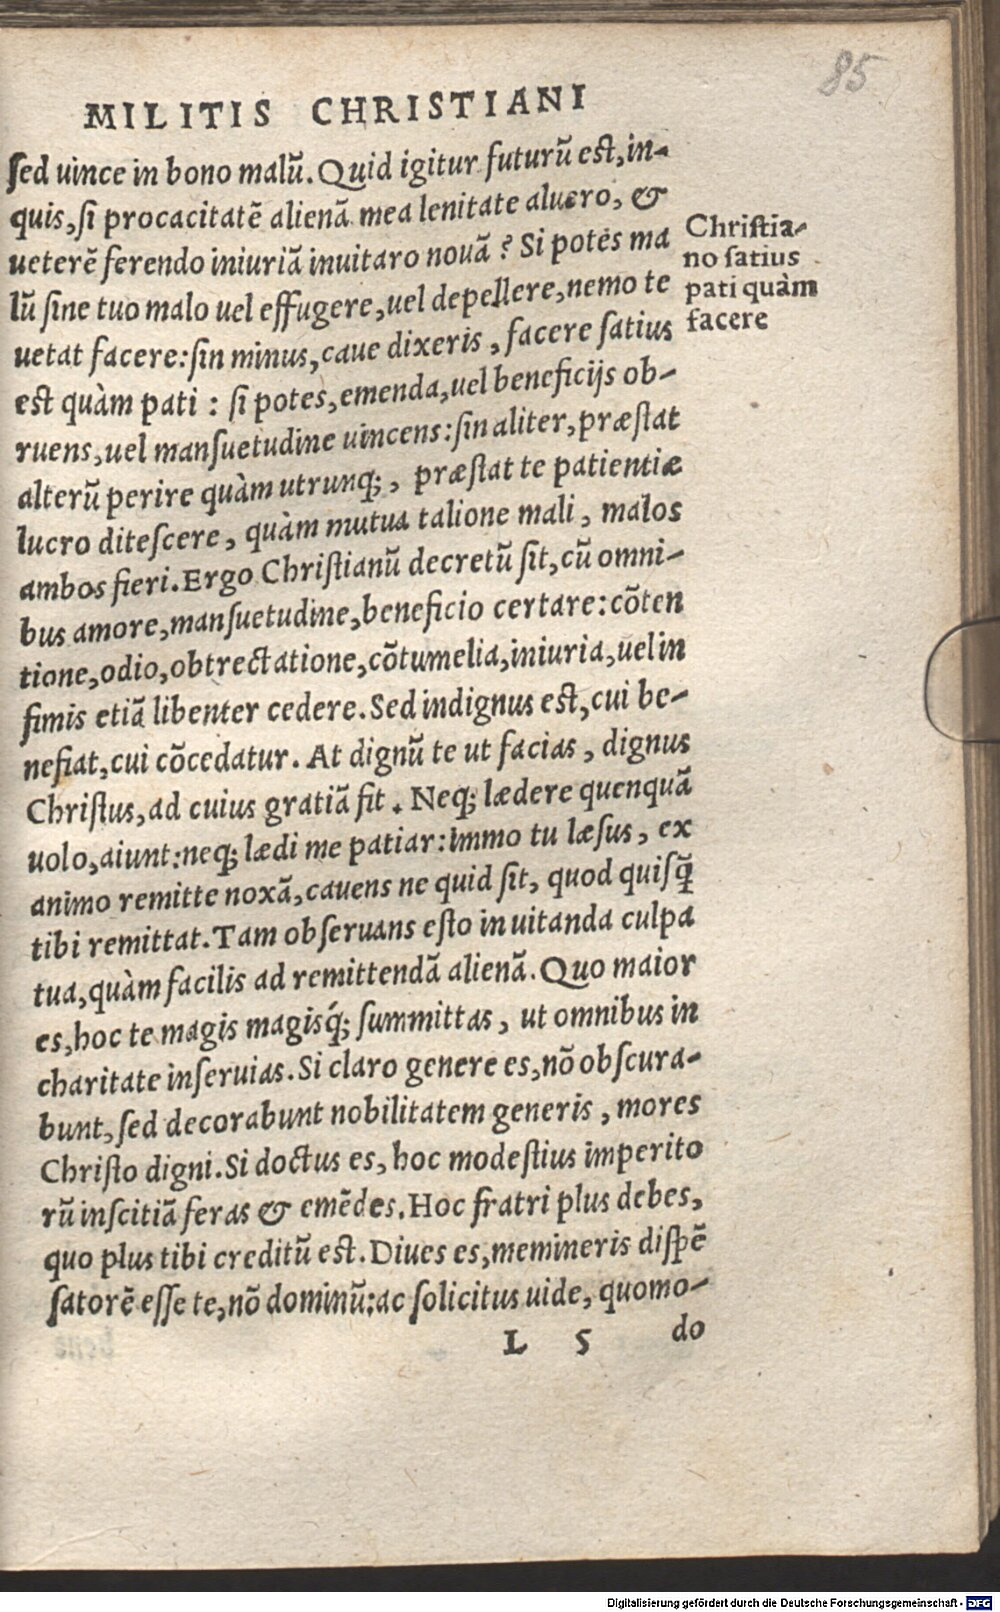 85
MILITIS CHRISTIANI
ſed uince in bono malũ. Quid igitur futurũ est, in-
quis, ſi procacitatẽ alienã mea lenitate aluero, &
ueterẽ ferendo iniuriã inuitaro nouã? Si potes ma
lũ ſine tuo malo uel effugere, uel depellere, nemo te
uetat facere: ſin minus, caue dixeris, facere ſatius
est quàm pati: ſi potes, emenda, uel beneficijs ob-
ruens, uel manſuetudine uincens: ſin aliter, præſtat
alterũ perire quàm utrunq;, præſtat te patientiæ
lucro diteſcere, quàm mutua talione mali, malos
ambos fieri. Ergo Chriſtianũ decretũ ſit, cũ omni-
bus amore, manſuetudine, beneficio certare: cõten
tione, odio, obtrectatione, cõtumelia, iniuria, uel in
fimis etiã libenter cedere. Sed indignus est, cui be-
nefiat, cui cõcedatur. At dignũ te ut facias, dignus
Chriſtus, ad cuius gratiã fit. Neq; lædere quenquã
uolo, aiunt: neq; lædi me patiar: immo tu læſus, ex
animo remitte noxã, cauens ne quid ſit, quod quiſq̃
tibi remittat. Tam obſeruans eſto in uitanda culpa
tua, quàm facilis ad remittendã alienã. Quo maior
es, hoc te magis magisq́; ſummittas, ut omnibus in
charitate inſeruias. Si claro genere es, nõ obſcura-
bunt, ſed decorabunt nobilitatem generis, mores
Chriſto digni. Si doctus es, hoc modeſtius imperito
rũ inſcitiã feras & emẽdes. Hoc fratri plus debes,
quo plus tibi creditũ est. Diues es, memineris diſpẽ
ſatorẽ eſſe te, nõ dominũ: ac ſolicitus uide, quomo-
L 5 do
Chriſtia-
no ſatius
pati quàm
facere
Digitalisierung gefördert durch die Deutsche Forschungsgemeinschaft - DFG